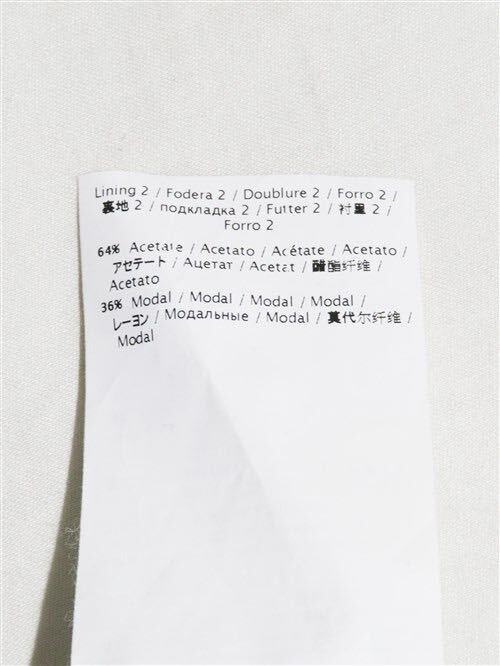 Lining 2 / Fodera 2 / Doublure 2 / Forro 2 /
裏地 2 / подкладка 2 / Futter 2 / 衬里 2 /
Forro 2
64% Acetate / Acetato / Acétate / Acetato /
アセテート / Ацетат / Acetat / 醋酯纤维 /
Acetato
36% Modal / Modal / Modal / Modal /
レーヨン / Модальные / Modal / 莫代尔纤维 /
Modal